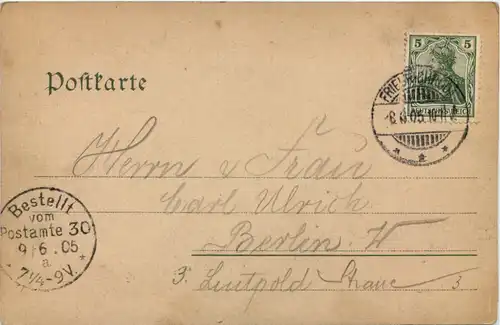 5 5
Postkarte
FRIEDRICHRODA
8.6.05.10-11V.
Herrn u Frau
Carl Ulrich
Berlin W
3. Luitpold Strasse 3
Bestellt
vom
Postamte 30
9/6.05
a.
7¼-9V.